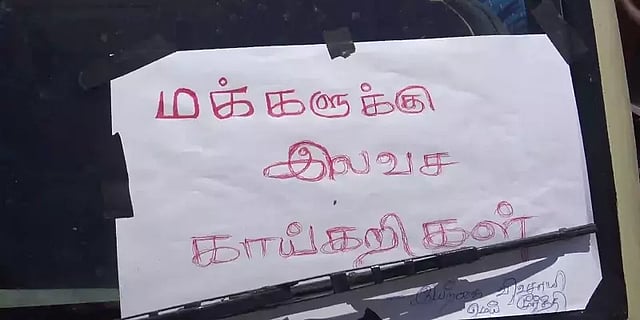 மக்களுக்கு
இலவச
காய்கறிகள்
விவசாயி